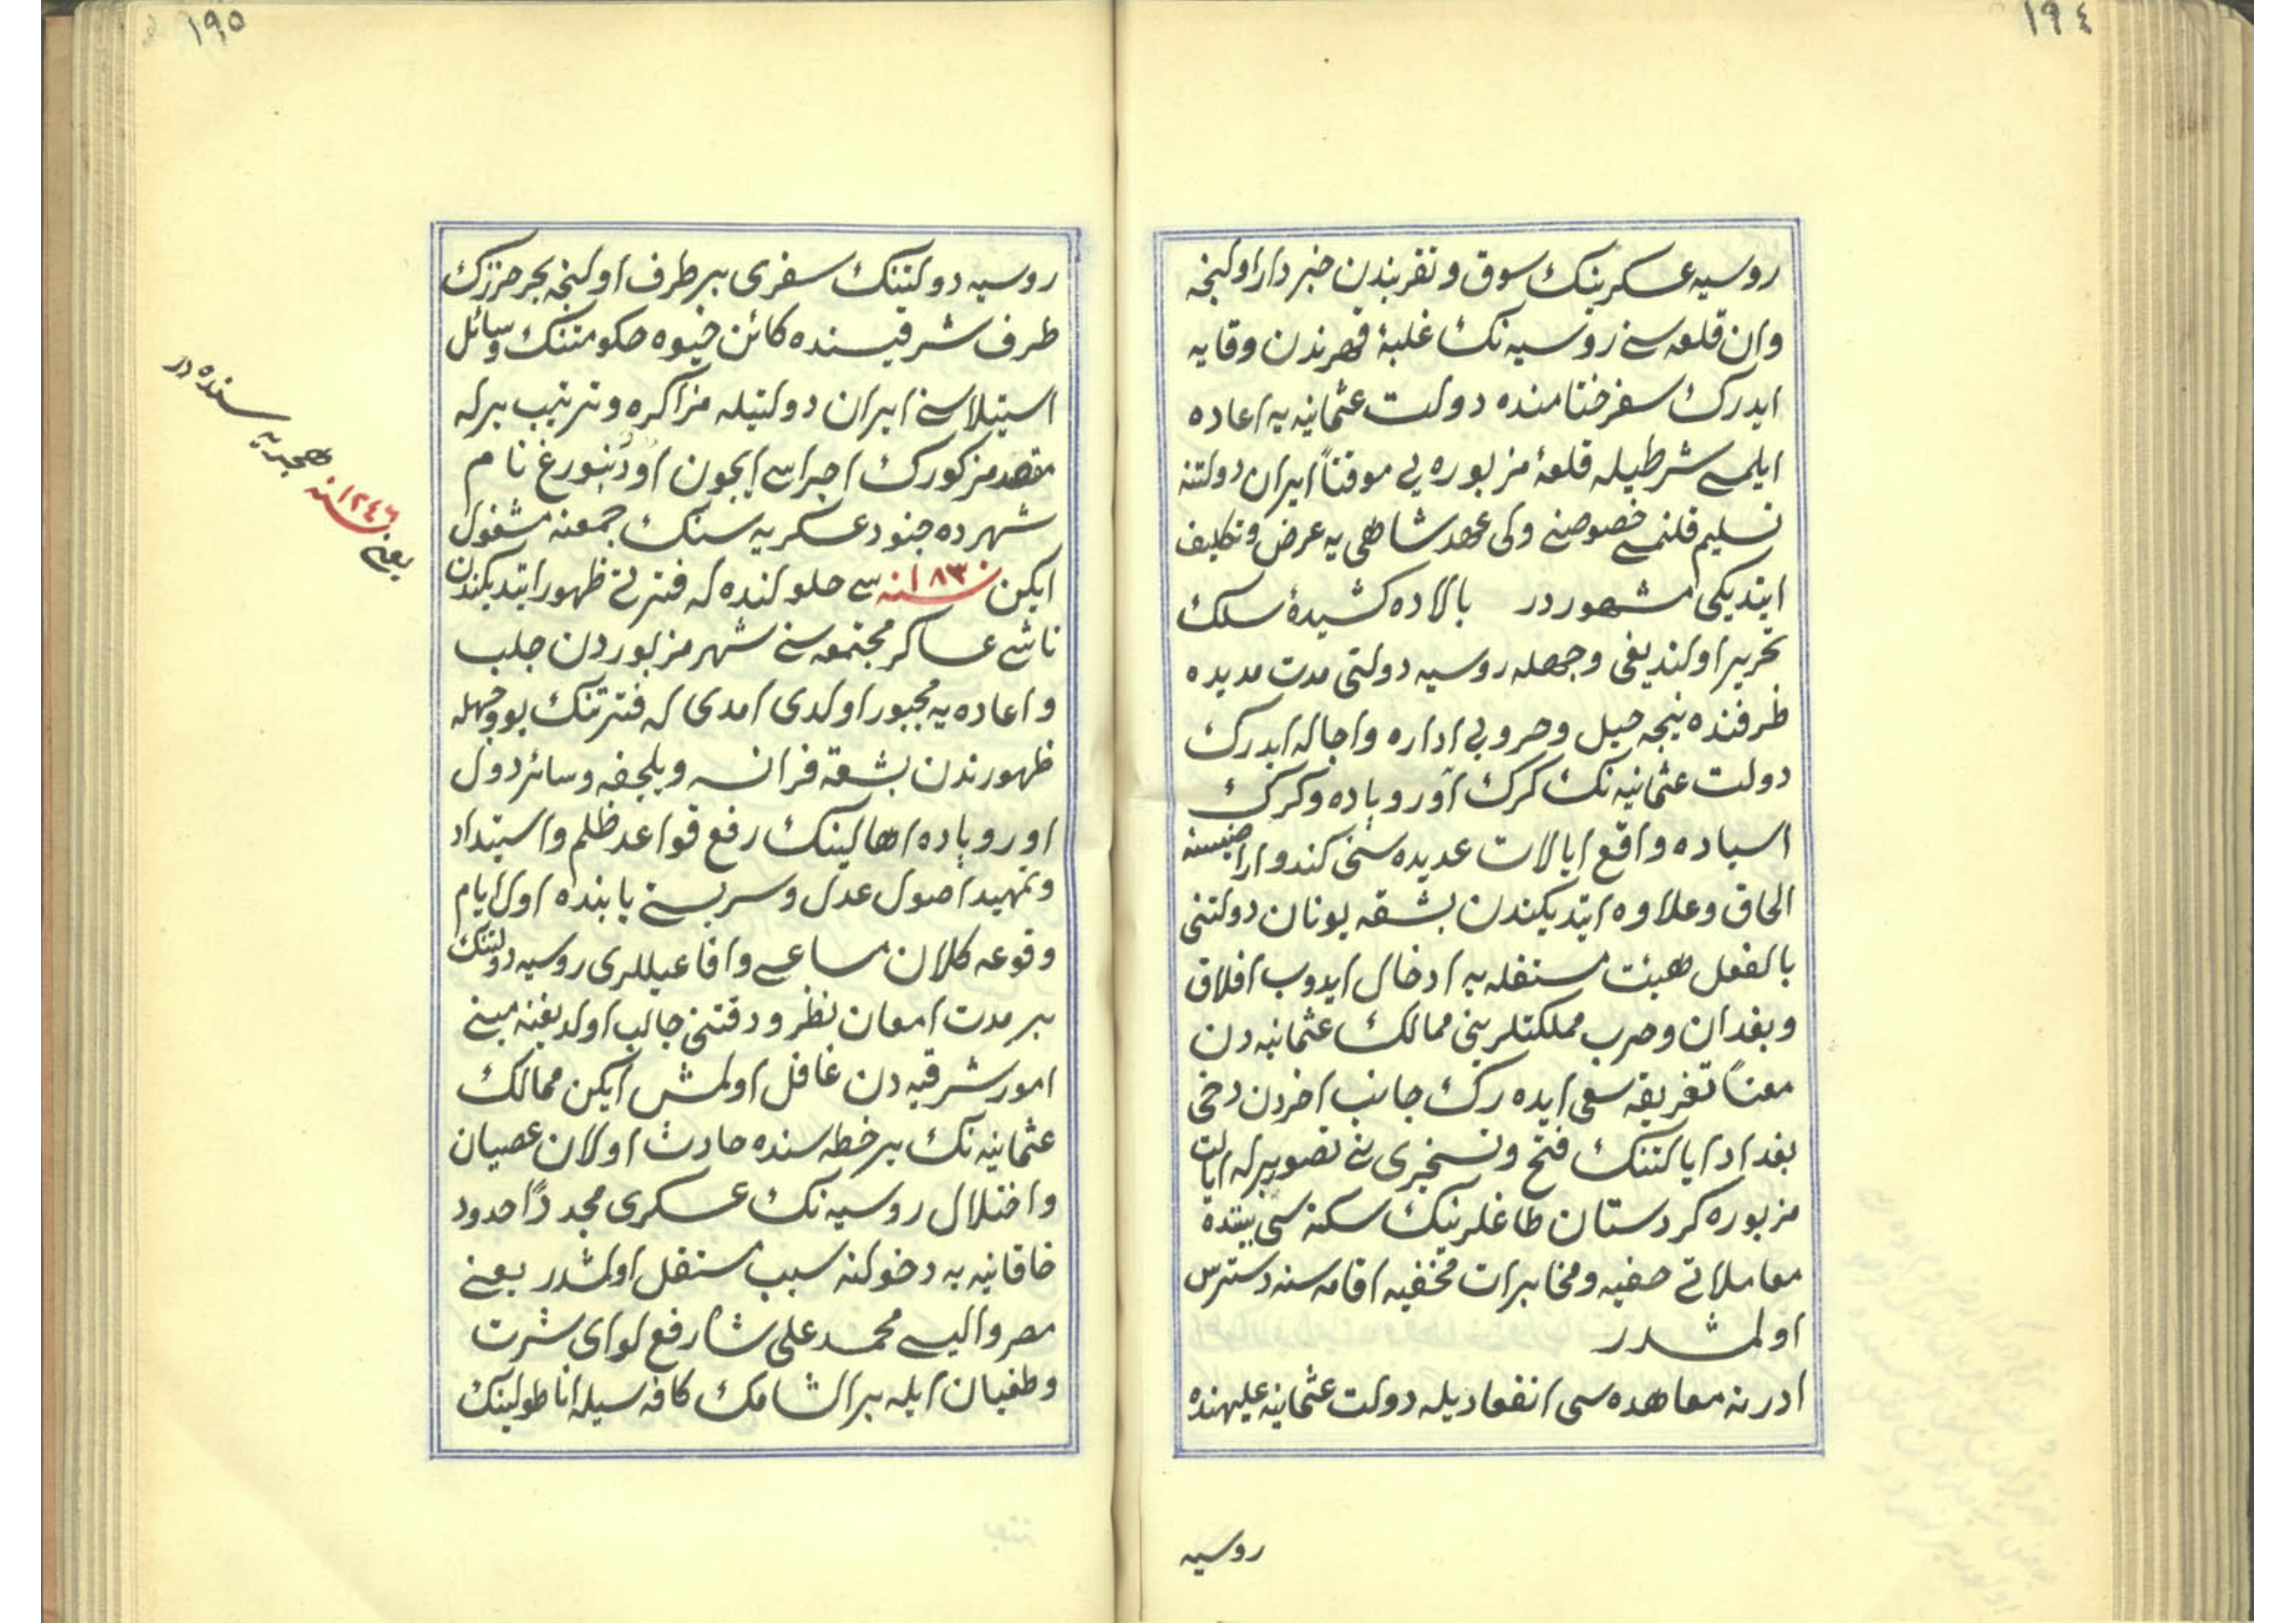 ١٩٤
روسیه عسکرینك سوق و تقریبندن خبردار اولنجه
وان قلعه سنی روسیه نك غلبهٔ قهرندن وقایه
ایدرك سفر ختامنده دولت عثمانیه یه اعاده
ایلمسی شرطیله قلعهٔ مزبوره یی موقتاً ایران دولتنه
تسلیم قلنمسی خصوصنی ولی عهد شاهی یه عرض و تکلیف
ایتدیکی مشهوردر بالاده کشیدهٔ سلك
تحریر اولندیغی وجهله روسیه دولتی مدت مدیده
ظرفنده نیجه حیل و حروبی اداره و اجاله ایدرك
دولت عثمانیه نك كرك اوروپاده و كرك
اسیاده واقع ایالات عدیده سنی کندو اراضیسنه
الحاق و علاوه ایتدیکندن بشقه یونان دولتنی
بالفعل هیئت مستقله یه ادخال ایدوب افلاق
و بغدان و صرب مملکتلرینی ممالك عثمانیه دن
معناً تفریقه سعی ایده رك جانب اخردن دخی
بغداد ایالتنك فتح و تسخیری نی تصویرله ایالت
مزبوره کردستان طاغلرینك سکنه سی بیننده
معاملاتی خفیه و مخابرات مخفیه اقامه سنه دسترس
اولمشدر
ادرنه معاهده سی انعقادیله دولت عثمانیه علیهنده
روسیه
١٩٥
روسیه دولتنك سفری برطرف اولنجه بحر خزرك
طرف شرقیسنده کائن خیوه حکومتنك وسائل
استیلاسنی ایران دولتیله مذاکره و ترتیب برله
مقصد مزکورك اجراسی ایچون اورنبورغ نام
شهرده جنود عسکریه سنك جمعنه مشغول
ایکن سنه ١٨٣٠ سی حلولنده له فترتی ظهور ایتدیکندن
ناشی عساکر مجتمعه سنی شهر مزبوردن جلب
و اعاده یه مجبور اولدی امدی له فترتنك بو وجهله
ظهورندن بشقه فرانسه و بلجقه و سائر دول
اوروپاده اهالینك رفع قواعد ظلم و استبداد
و تمهید اصول عدل و سربستی بابنده اول ایام
وقوعه کلان مساعی و افاعیللری روسیه دولتنك
بر مدت امعان نظر و دقتنی جالب اولدیغنه مبنی
امور شرقیه دن غافل اولمش ایکن ممالك
عثمانیه نك بر خطه سنده حادث اولان عصیان
و اختلال روسیه نك عسکری مجدداً حدود
خاقانیه یه دخولنه سبب مستقل اولمشدر یعنی
مصر والیسی محمد علی پاشا رفع لوای شرت
و طغیان ایله بر الشامك كافه سیله اناطولینك
یعنی سنه ١٢٤٦ هجریه سنده در